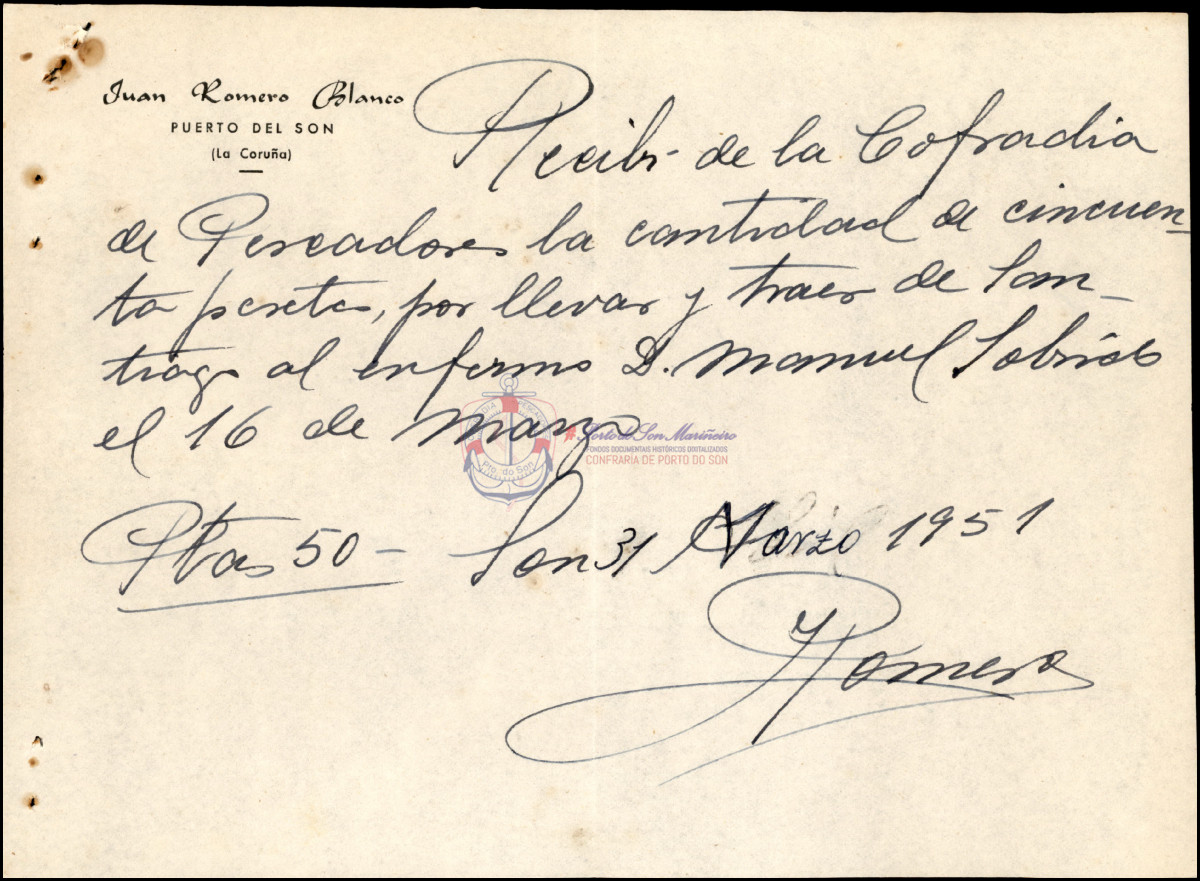 Juan Romero Blanco
PUERTO DEL SON
(La Coruña)
Recibí de la Cofradia
de Pescadores la cantidad de cincuen-
ta pesetas, por llevar y traer de San-
tiago al enfermo D. Manuel
el 16 de marzo
Porto do Son Mariñeiro
FONDOS DOCUMENTAIS HISTÓRICOS DIXITALIZADOS
CONFRARÍA DE PORTO DO SON
Pto. do Son
Ptas 50 - Son 31 Marzo 1951
Romero